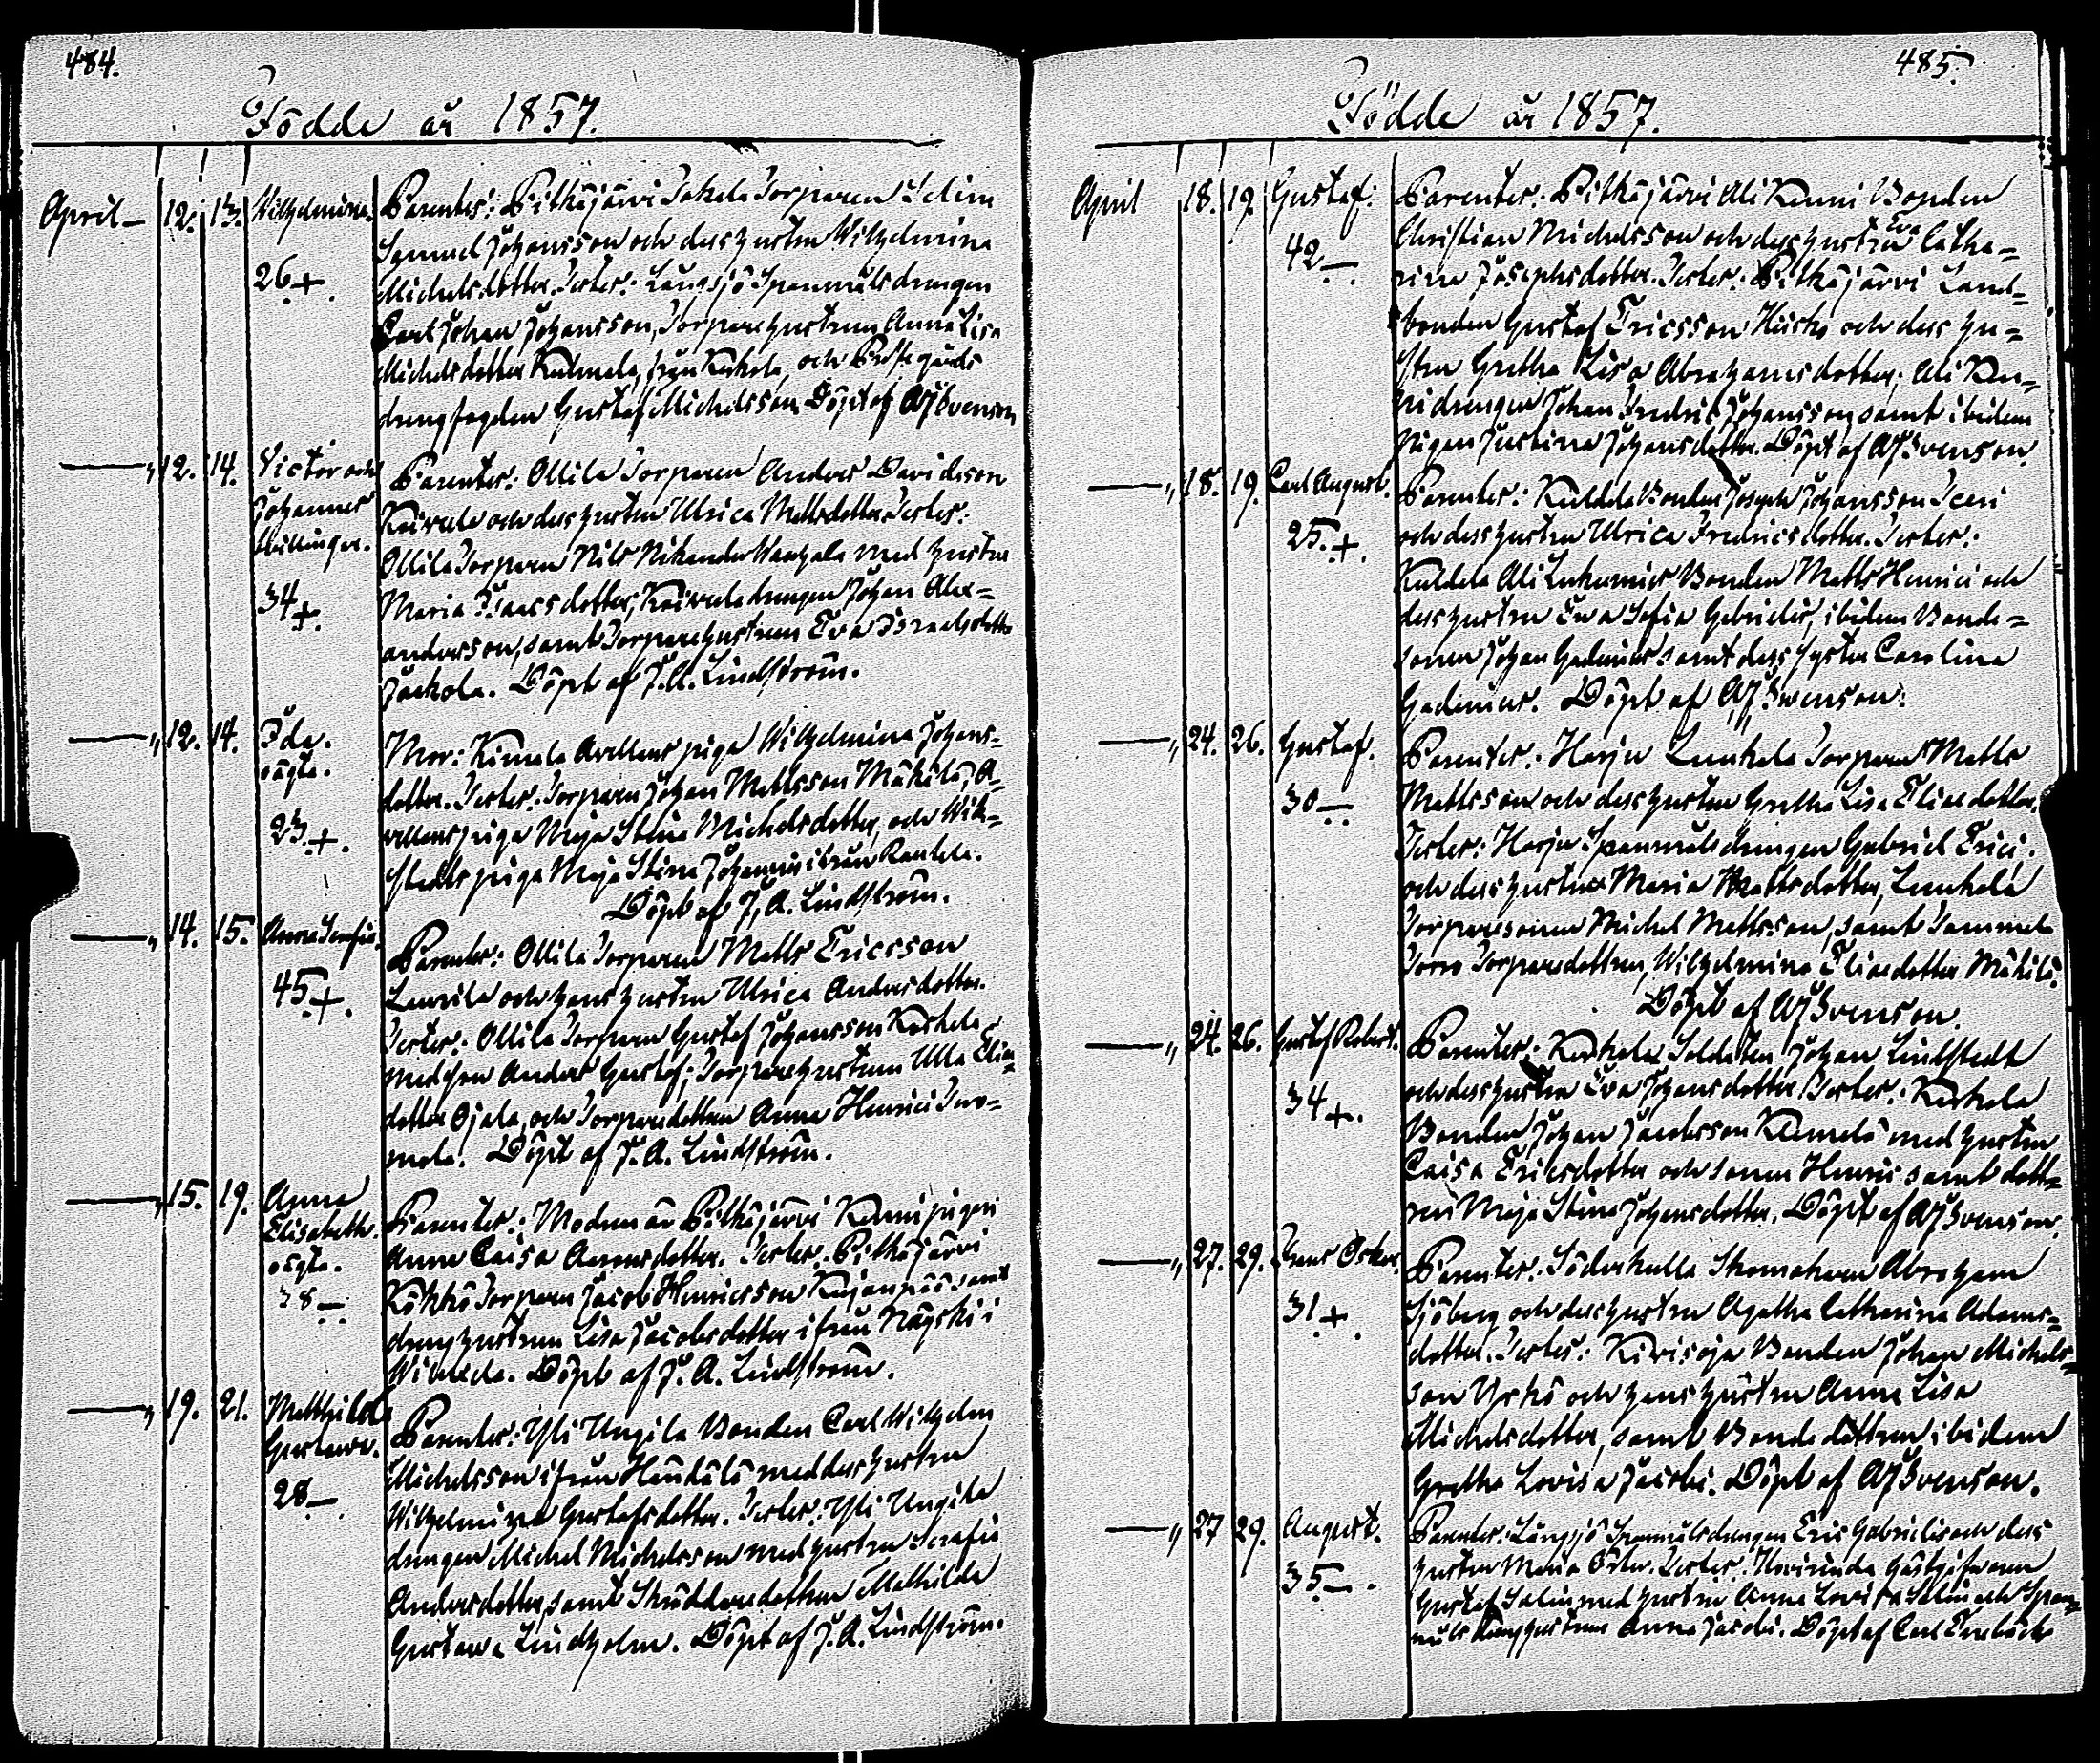 484.
Födde år 1857.
April — 12. 13. Wilhelmina.
26 +.
Parenter: Pitkäjärvi Torparen
Samuel Johansson och dess hustru Wilhelmina
Michelsdotter. Tester: Spanmåls drängen
Carl Johan Johansson, Torpare hustrun Anna Lisa
Michelsdotter från och Prestgårds
drängfogden Gustaf Michelsson. Döpt af AJSvenson
— „ 12. 14. Victor och
Johannes
tvillingar.
34 +.
Parenter: Ollila Torparen Anders Davidsson
och dess hustru Ulrica Mattsdotter. Tester:
Ollila Torparen Nils Nikander med hustru
Maria Isaacsdotter, drängen Johan Alex=
andersson, samt Torpare hustrun Eva Israelsdotter
Jaakola. Döpt af J. A. Lindström.
— „ 12. 14. Ida.
oägta.
23. +.
Mor: piga Wilhelmina Johans=
dotter. Tester: Torparen Johan Mattsson Mäkilä, A=
piga Maja Stina Michelsdotter, och Wik=
stedts piga Maja Stina ifrån
Döpt af J. A. Lindström.
— „ 14. 15. Anna
45 +.
Parenter: Ollila Torparen Matts Ericsson
och hans hustru Ulrica Andersdotter.
Tester: Ollila Torparen Gustaf Johansson
med son Anders Gustaf; Torpare hustrun Ulla Elias
dotter Ojala, och Torparedottren Anna Henrici
Döpt af J. A. Lindström.
— „ 15. 19. Anna
Elisabeth.
oägta.
38 —.
Parenter: Modren är Pitkäjärvi pigan
Anna Caisa Aaronsdotter. Tester: Pitkäjärvi
Torparen Jacob Henricsson samt
dräng hustrun Lisa Jacobsdotter ifrån i
Döpt af J. A. Lindström.
— „ 19. 21. Matthilda
Gustava.
28 —.
Parenter: Yli Ungila Bonden Carl Wilhelm
Michelsson ifrån med dess hustru
Wilhelmina Gustafsdotter. Tester: Yli Ungila
drängen Michel Michelsson med hustru Serafia
Andersdotter, samt Skräddaredottren Mathilda
Gustava Lindholm. Döpt af J. A. Lindström.
485.
Födde år 1857.
April 18. 19. Gustaf.
42 —.
Parenter: Pitkäjärvi Ali Bonden
Christian Michelsson och dess hustru Eva Catha=
rina Josephsdotter. Tester: Pitkäjärvi Land=
bonden Gustaf Ericsson och dess hu=
stru Gretha Lisa Abrahamsdotter; Ali
drengen Johan Fredric Johansson, samt ibidem
pigan Justina Johansdotter. Döpt af AJSvenson.
— „ 18. 19. Carl August.
25. +.
Parenter: Bonden Joseph Johansson
och dess hustru Ulrica Fredricsdotter. Tester:
Ali Bonden Matts Henrici och
dess hustru Eva Sofia Gabriels, ibidem Bonde=
sonen Johan samt dess syster Carolina
Döpt af AJSvenson.
— „ 24. 26. Gustaf.
30 —.
Parenter: Harju Torparen Matts
Mattsson och dess hustru Gretha Lisa Eliasdotter.
Tester: Harju Spanmålsdrängen Gabriel Erici.
och dess hustru Maria Mattsdotter,
Torparesonen Michel Mattsson, samt
Torparedottren, Wilhelmina Eliasdotter Mäkilä.
Döpt af AJSvenson.
— „ 24. 26. Gustaf Robert.
34 +.
Parenter: Soldaten Johan Lindstedt
och dess hustru Eva Johansdotter. Tester:
Bonden Johan Jacobsson med hustru
Caisa Ericsdotter och sonen Henric samt dott=
ren Maja Stina Johansdotter. Döpt af AJSvenson.
— „ 27. 29. Frans Oskar.
31. +.
Parenter: Söderkulla Skomakaren Abraham
Sjöberg och dess hustru Agatha Catharina Adams=
dotter. Tester: Kivisoja Bonden Johan Michels=
son Yrkö och hans hustru Anna Lisa
Michelsdotter, samt Bonde dottren ibidem
Gretha Lovisa Jacobi. Döpt af AJSvenson.
— „ 27 29. August.
35 —.
Parenter: Spanmålsdrängen Eric Gabrielis och dess
hustru Maria Tester: Gästgifvaren
Gustaf Salin med hustru Anna Lovisa Salin och Span=
måls dräng hustrun Anna Jacobi. Döpt af Carl